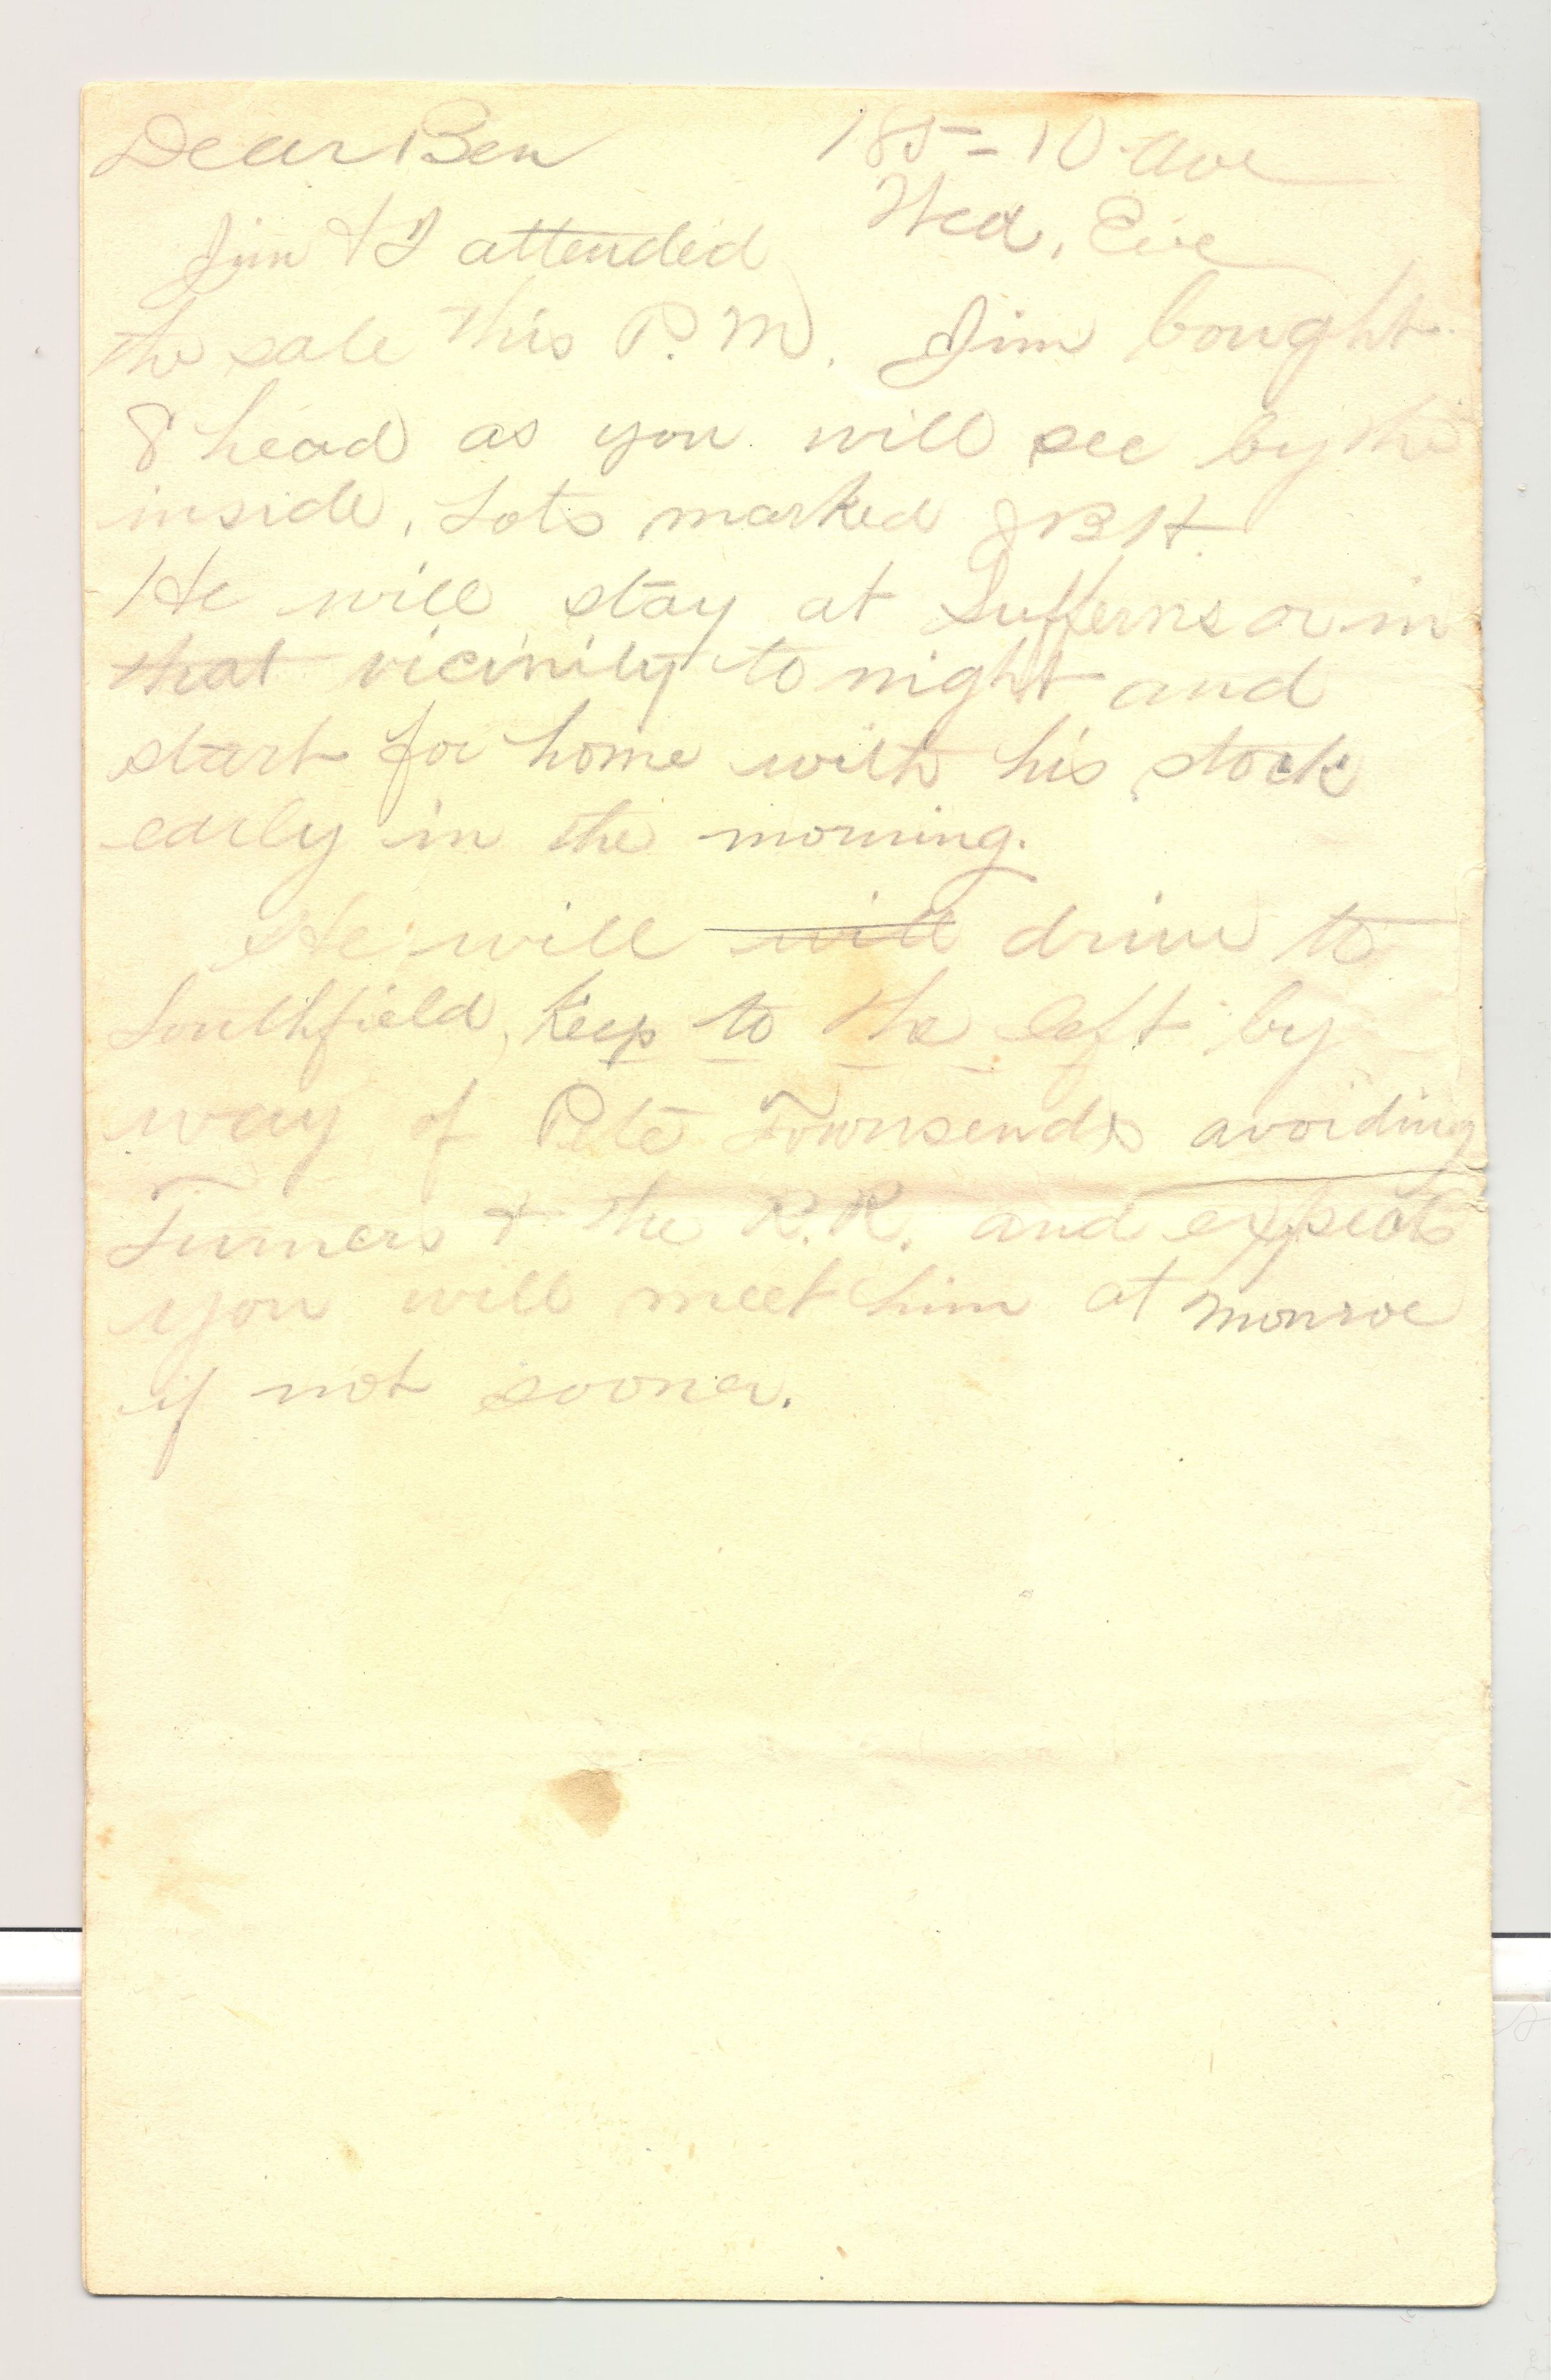 Dear Ben 185 - 10 Ave
Wed, Eve
Jim & I attended
the sale this P.M. Jim bought
8 head as you will see by the
inside. Lots marked JBH.
He will stay at Sufferns or in
that vicinity to night and
start for home with his stock
early in the morning.
He will will drive to
Southfield, Keep to the left by
way of Pete Townsends avoiding
Turners & the R.R. and expects
you will meet him at Monroe
if not sooner.